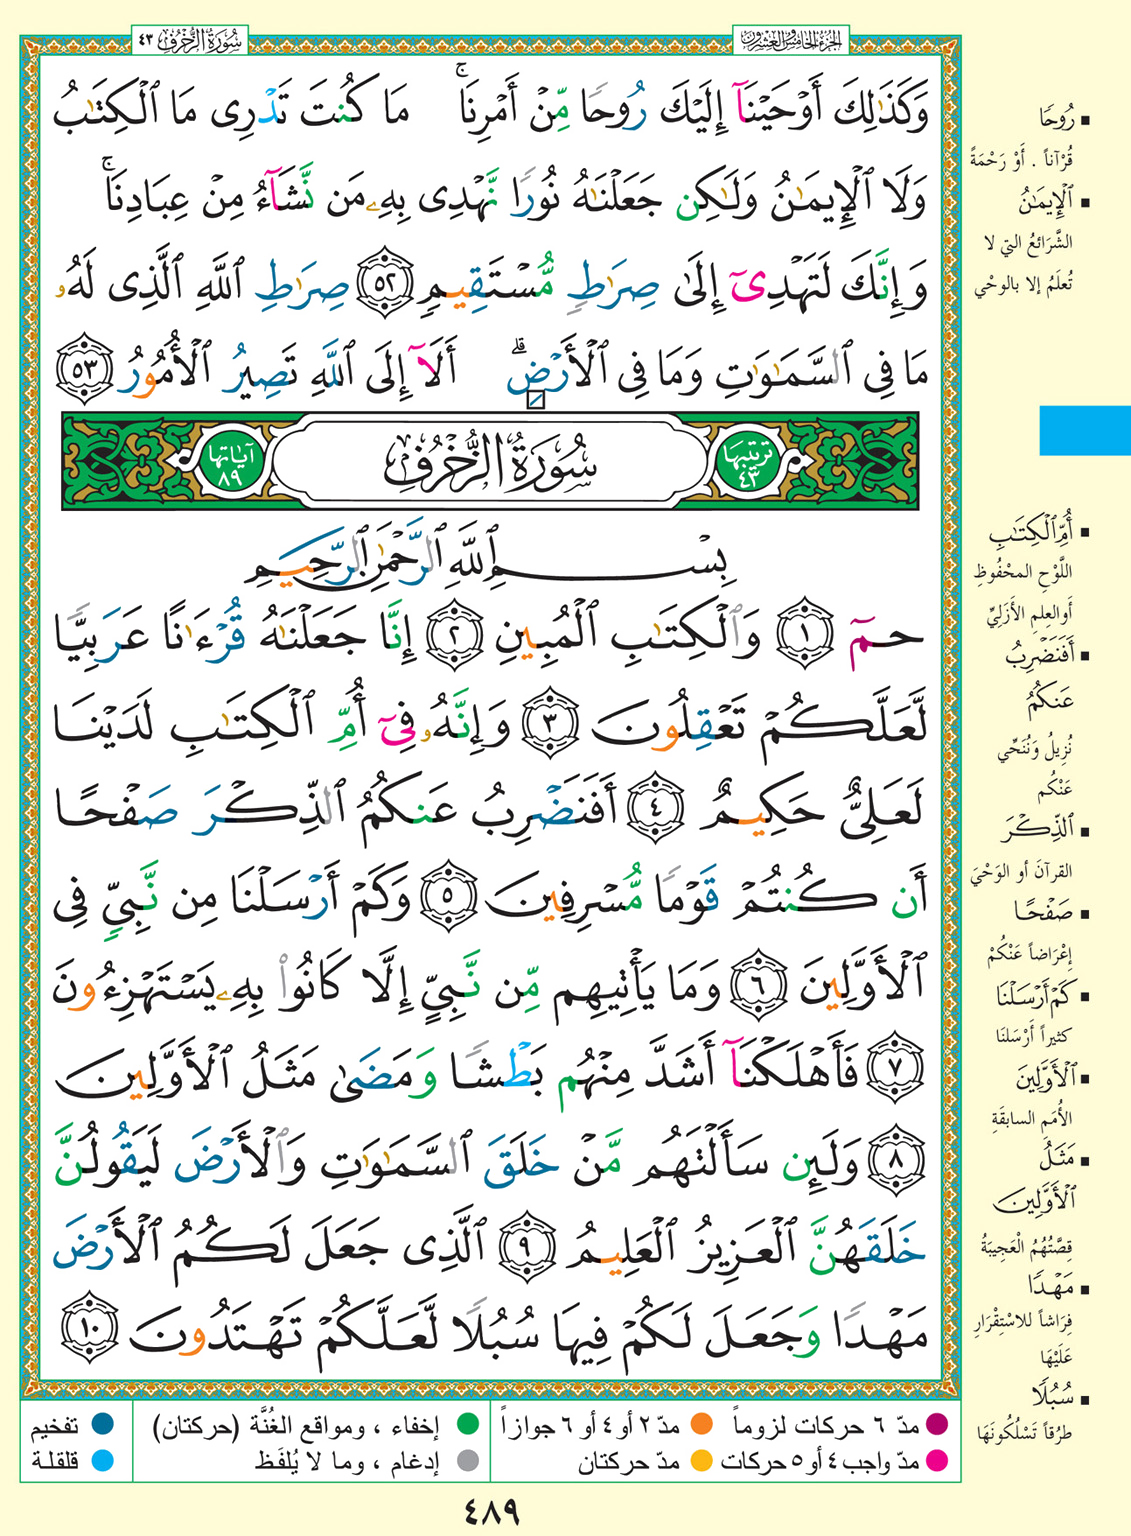 سُورَةُ الزُّخْرُفِ ٤٣
الجزء الخامس والعشرون
وَكَذَٰلِكَ أَوْحَيْنَآ إِلَيْكَ رُوحًا مِّنْ أَمْرِنَا ۚ مَا كُنتَ تَدْرِى مَا ٱلْكِتَٰبُ
وَلَا ٱلْإِيمَٰنُ وَلَٰكِن جَعَلْنَٰهُ نُورًا نَّهْدِى بِهِۦ مَن نَّشَآءُ مِنْ عِبَادِنَا ۚ
وَإِنَّكَ لَتَهْدِىٓ إِلَىٰ صِرَٰطٍ مُّسْتَقِيمٍ ٥٢ صِرَٰطِ ٱللَّهِ ٱلَّذِى لَهُۥ
مَا فِى ٱلسَّمَٰوَٰتِ وَمَا فِى ٱلْأَرْضِ ۗ أَلَآ إِلَى ٱللَّهِ تَصِيرُ ٱلْأُمُورُ ٥٣
ترتيبها ٤٣
سُورَةُ الزُّخْرُفِ
آياتها ٨٩
بِسْمِ ٱللَّهِ ٱلرَّحْمَٰنِ ٱلرَّحِيمِ
حمٓ ١ وَٱلْكِتَٰبِ ٱلْمُبِينِ ٢ إِنَّا جَعَلْنَٰهُ قُرْءَٰنًا عَرَبِيًّا
لَّعَلَّكُمْ تَعْقِلُونَ ٣ وَإِنَّهُۥ فِىٓ أُمِّ ٱلْكِتَٰبِ لَدَيْنَا
لَعَلِىٌّ حَكِيمٌ ٤ أَفَنَضْرِبُ عَنكُمُ ٱلذِّكْرَ صَفْحًا
أَن كُنتُمْ قَوْمًا مُّسْرِفِينَ ٥ وَكَمْ أَرْسَلْنَا مِن نَّبِىٍّ فِى
ٱلْأَوَّلِينَ ٦ وَمَا يَأْتِيهِم مِّن نَّبِىٍّ إِلَّا كَانُوا۟ بِهِۦ يَسْتَهْزِءُونَ
٧ فَأَهْلَكْنَآ أَشَدَّ مِنْهُم بَطْشًا وَمَضَىٰ مَثَلُ ٱلْأَوَّلِينَ
٨ وَلَئِن سَأَلْتَهُم مَّنْ خَلَقَ ٱلسَّمَٰوَٰتِ وَٱلْأَرْضَ لَيَقُولُنَّ
خَلَقَهُنَّ ٱلْعَزِيزُ ٱلْعَلِيمُ ٩ ٱلَّذِى جَعَلَ لَكُمُ ٱلْأَرْضَ
مَهْدًا وَجَعَلَ لَكُمْ فِيهَا سُبُلًا لَّعَلَّكُمْ تَهْتَدُونَ ١٠
رُوحًا
قُرْآناً . أَوْ رَحْمَةً
ٱلْإِيمَٰنُ
الشَّرَائعُ التي لا
تُعلَمُ إلا بالوحْي
أُمِّ ٱلْكِتَٰبِ
اللَّوْحِ المحْفُوظِ
أوالعِلمِ الأَزَلِيِّ
أَفَنَضْرِبُ
عَنكُمُ
نُزِيلُ وَنُنَحِّي
عَنْكُم
ٱلذِّكْرَ
القرآنَ أو الوَحْيَ
صَفْحًا
إعْرَاضاً عَنْكُمْ
كَمْ أَرْسَلْنَا
كثيراً أَرْسَلنَا
ٱلْأَوَّلِينَ
الأُمَمِ السابقَةِ
مَثَلُ
ٱلْأَوَّلِينَ
قِصَّتُهُمُ الْعَجِيبَةُ
مَهْدًا
فِرَاشاً للاسْتِقْرَارِ
عَلَيْهَا
سُبُلًا
طرُقاً تَسْلُكُونَهَا
مدّ ٦ حركات لزوماً
مدّ ٢ أو ٤ أو ٦ جوازاً
إخفاء ، ومواقع الغُنَّة (حركتان)
تفخيم
مدّ واجب ٤ أو ٥ حركات
مدّ حركتان
إدغام ، وما لا يُلفَظ
قلقلة
٤٨٩